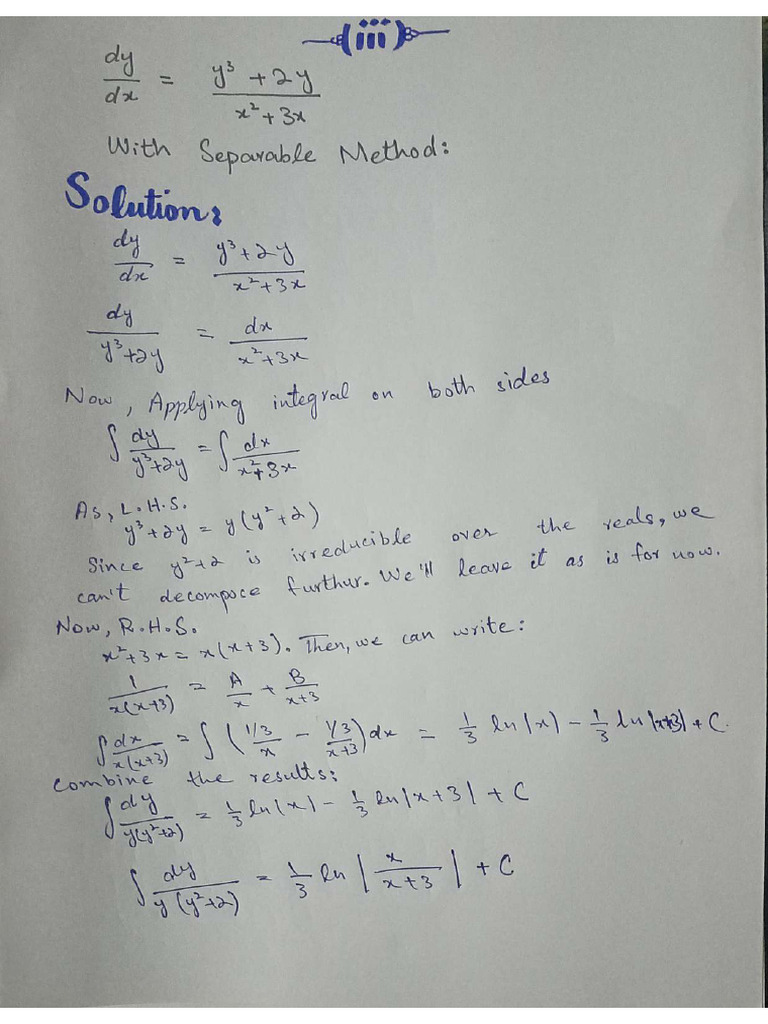 (iii)
dy/dx = (y³ + 2y)/(x² + 3x)
With Separable Method:
Solution:
dy/dx = (y³ + 2y)/(x² + 3x)
dy/(y³ + 2y) = dx/(x² + 3x)
Now, Applying integral on both sides
∫ dy/(y³ + 2y) = ∫ dx/(x² + 3x)
As, L.H.S.
y³ + 2y = y(y² + 2)
Since y² + 2 is irreducible over the reals, we
can't decompoce furthur. We'll leave it as is for now.
Now, R.H.S.
x² + 3x = x(x+3). Then, we can write:
1/(x(x+3)) = A/x + B/(x+3)
∫ dx/(x(x+3)) = ∫ ( (1/3)/x − (1/3)/(x+3) ) dx = 1/3 ln|x| − 1/3 ln|x+3| + C.
Combine the results:
∫ dy/(y(y²+2)) = 1/3 ln|x| − 1/3 ln|x+3| + C
∫ dy/(y(y²+2)) = 1/3 ln | x/(x+3) | + C